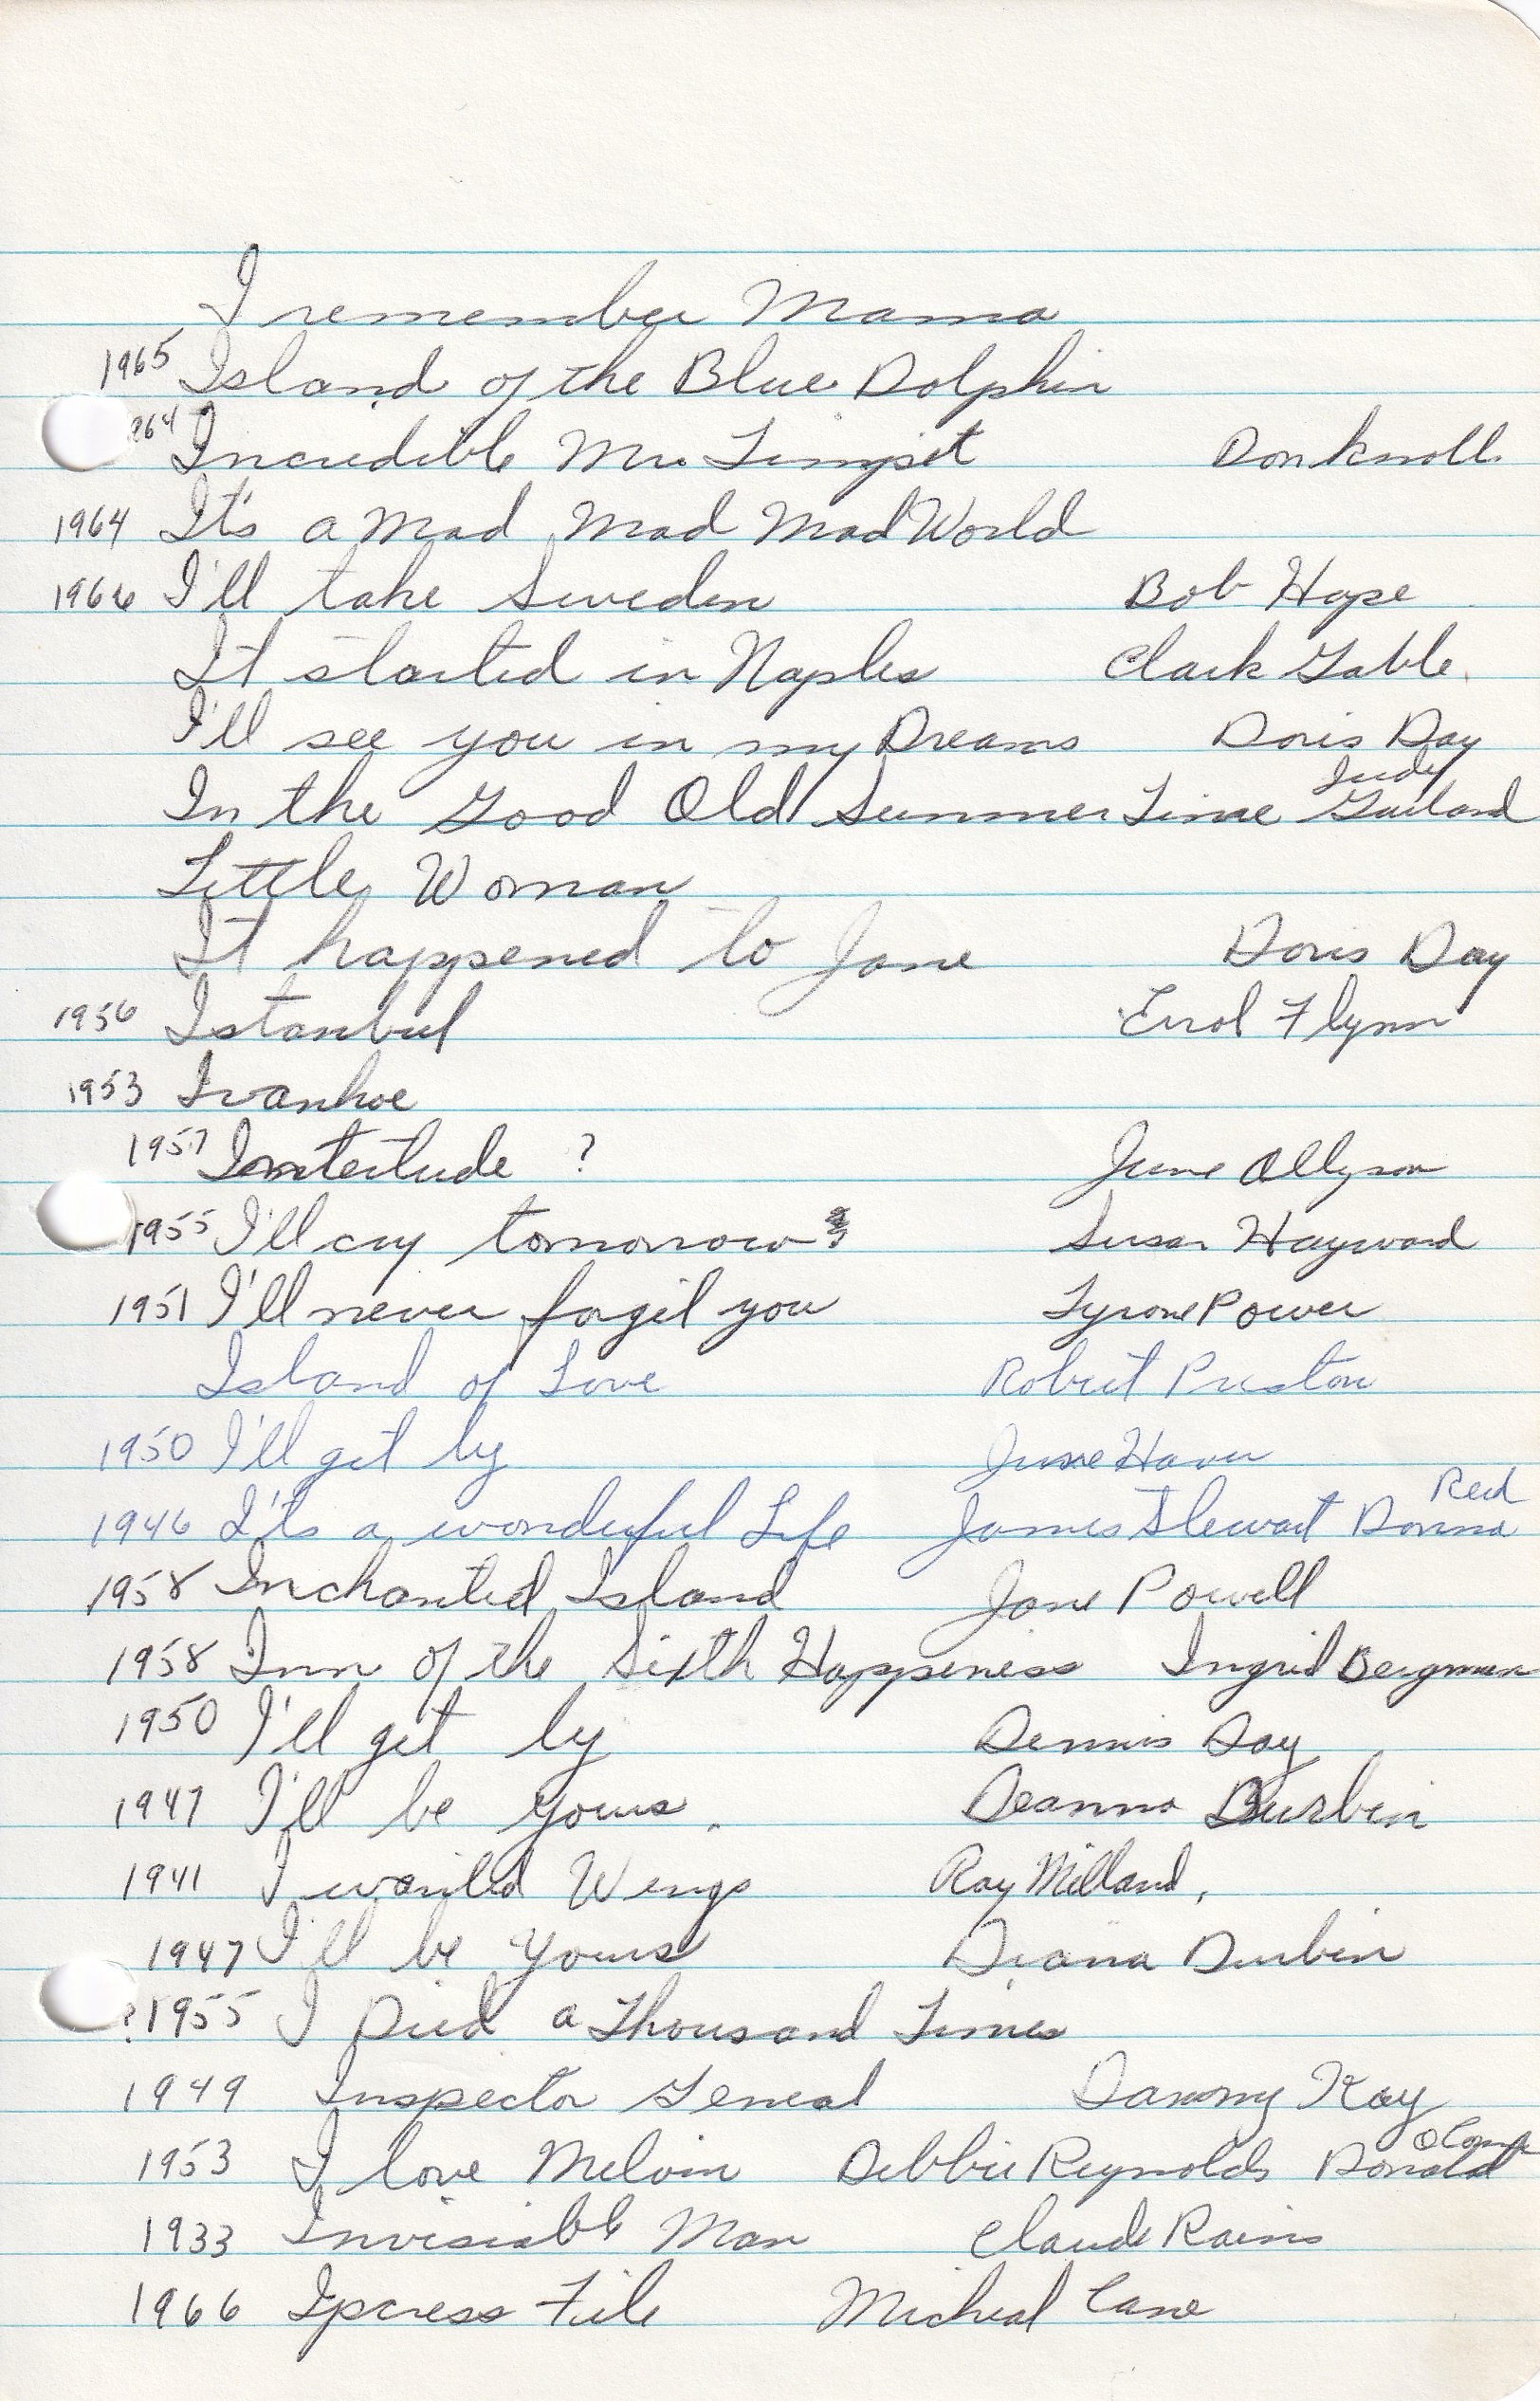 I remember Mama
1965 Island of the Blue Dolphin
964 Incredible Mr. Limpet Don knoll.
1964 It's a Mad Mad Mad World
1966 I'll take Sweden Bob Hope
It started in Naples Clark Gable.
I'll see you in my Dreams Doris Day
In the Good Old Summer Time Judy Garland
Little Woman
It happened to Jane Doris Day
1956 Istanbul Errol Flynn
1953 Ivanhoe
1957 ? June Allyson
1955 I'll cry tomorrow Susan Hayward
1951 I'll never forget you Tyrone Power
Island of Love Robert Preston
1950 I'll get by June Haver
1946 It's a wonderful Life James Stewart Donna Reed
1958 Inchanted Island Jane Powell
1958 Inn of the Sixth Happeness Ingrid Bergman
1950 I'll get by Dennis Day
1947 I'll be yours. Deanna Durbin
1941 I wanted Wings Ray Milland,
1947 I'll be yours Diana Durbin
?1955 I Died a Thousand Times
1949 Inspector General Danny Kay
1953 I love Melvin Debbie Reynolds Donald
1933 Invisiable Man Claude Rains
1966 Ipcress File Micheal Cane